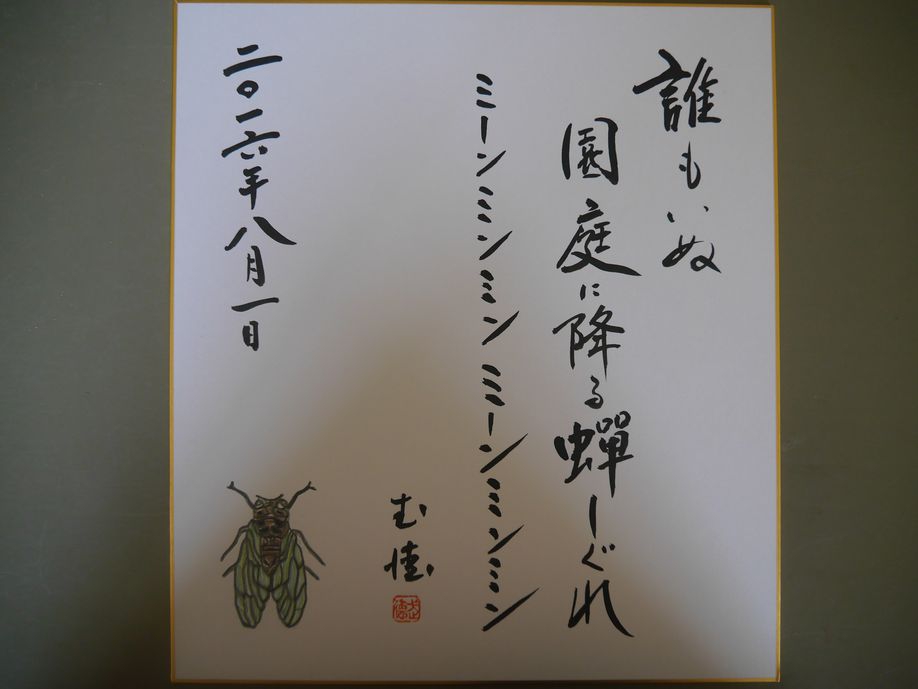 誰もいぬ
園庭に降る蟬しぐれ
ミーンミミンミン ミーンミンミン
二〇一六年八月一日